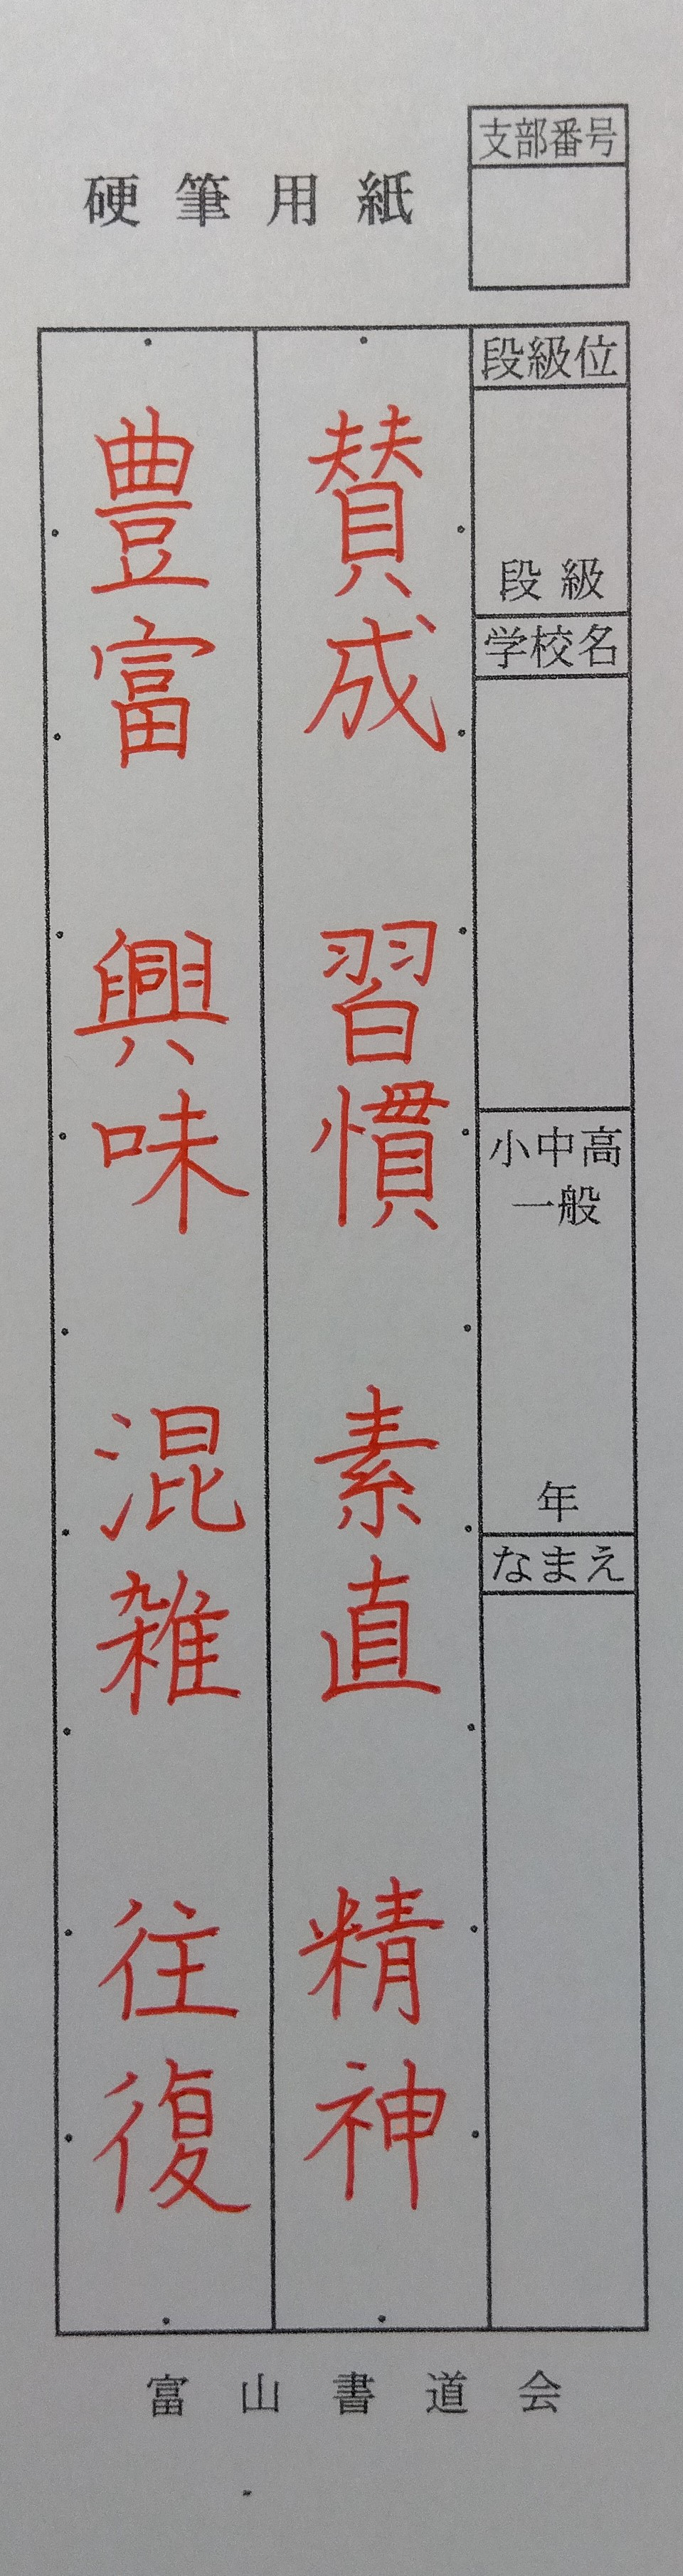 硬筆用紙
支部番号
段級位
段級
学校名
小中高
一般
年
なまえ
賛成 習慣 素直 精神
豊富 興味 混雑 往復
富山書道会